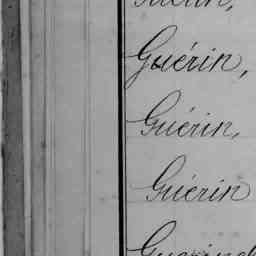 Guérin,
Guérin,
Guérin